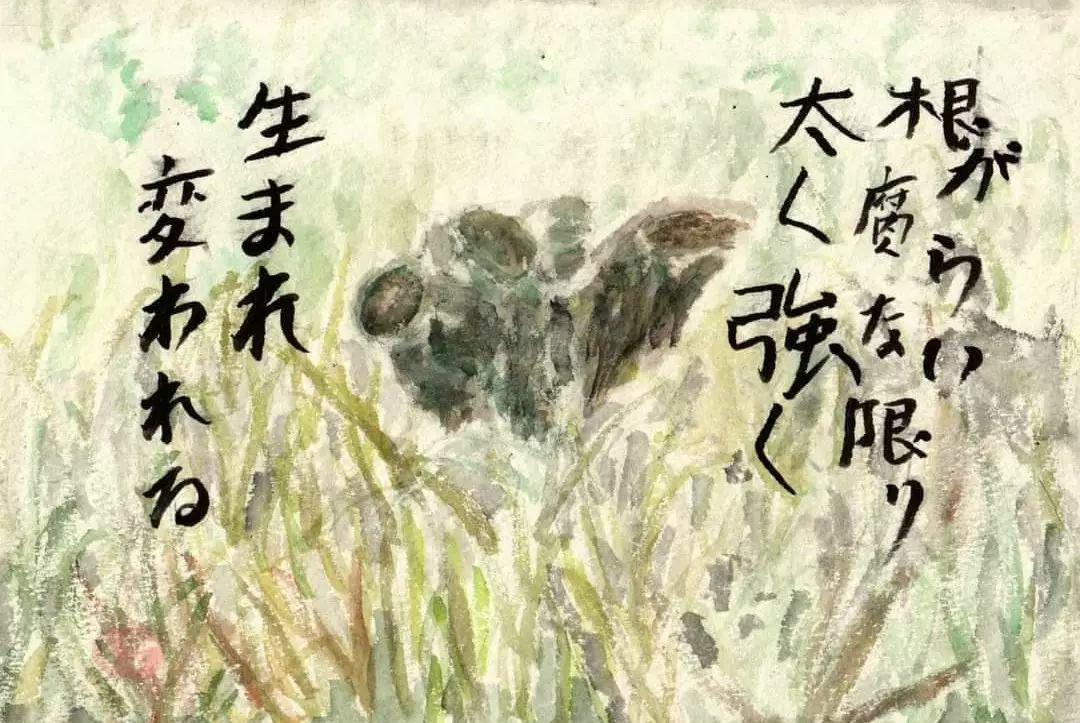 根が腐らない限り
太く強く
生まれ
変われる